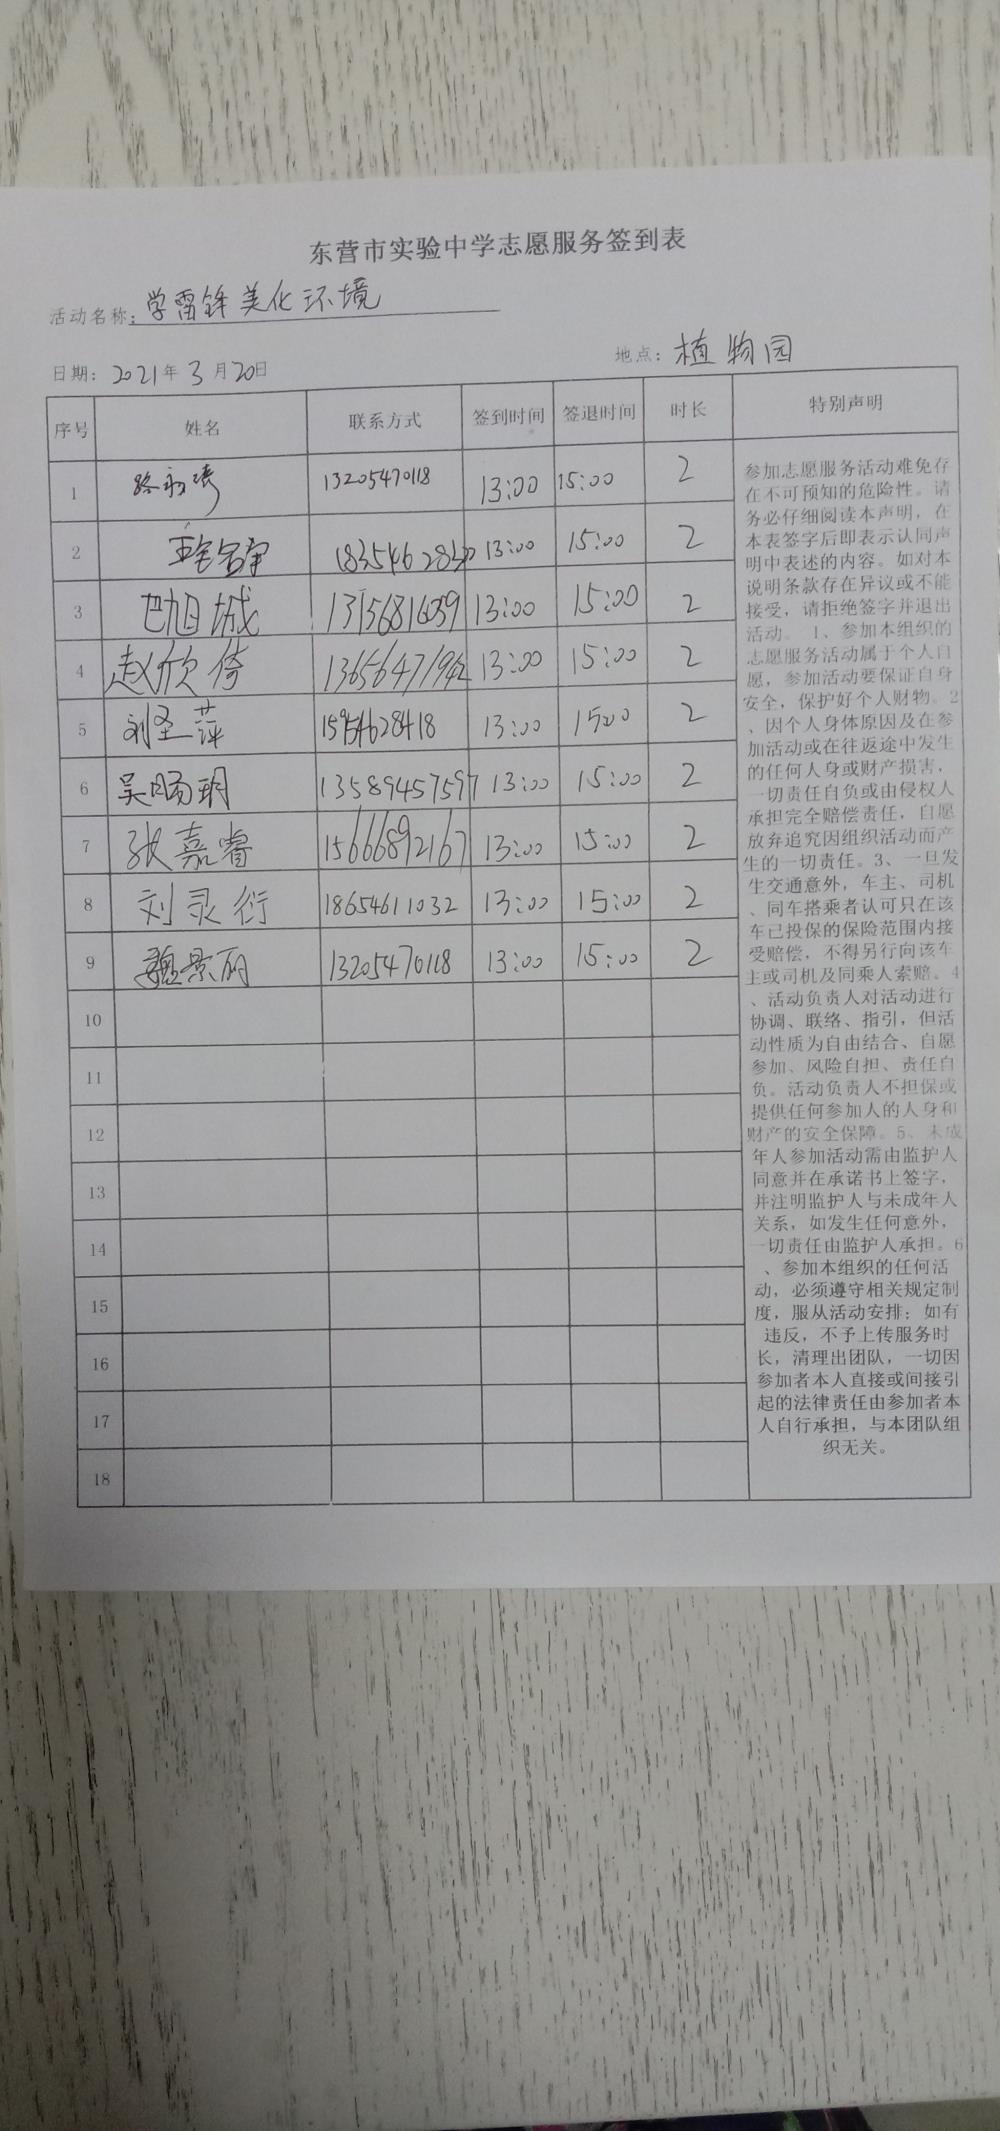 东营市实验中学志愿服务签到表
活动名称：学雷锋美化环境
日期：2021年3月20日 地点：植物园
序号 姓名 联系方式 签到时间 签退时间 时长 特别声明
1 13205470118 13:00 15:00 2
2 13:00 15:00 2
3 巴旭城 13:00 15:00 2
4 赵欣倚 13:00 15:00 2
5 刘圣萍 13:00 1500 2
6 吴旸玥 13589457597 13:00 15:00 2
7 张嘉睿 15666892167 13:00 15:00 2
8 刘灵衍 18654611032 13:00 15:00 2
9 魏景丽 13205470118 13:00 15:00 2
10
11
12
13
14
15
16
17
18
参加志愿服务活动难免存
在不可预知的危险性。请
务必仔细阅读本声明，在
本表签字后即表示认同声
明中表述的内容。如对本
说明条款存在异议或不能
接受，请拒绝签字并退出
活动。 1、参加本组织的
志愿服务活动属于个人自
愿，参加活动要保证自身
安全，保护好个人财物。2
、因个人身体原因及在参
加活动或在往返途中发生
的任何人身或财产损害，
一切责任自负或由侵权人
承担完全赔偿责任，自愿
放弃追究因组织活动而产
生的一切责任。3、一旦发
生交通意外，车主、司机
、同车搭乘者认可只在该
车已投保的保险范围内接
受赔偿，不得另行向该车
主或司机及同乘人索赔。4
、活动负责人对活动进行
协调、联络、指引，但活
动性质为自由结合、自愿
参加、风险自担、责任自
负。活动负责人不担保或
提供任何参加人的人身和
财产的安全保障。5、未成
年人参加活动需由监护人
同意并在承诺书上签字，
并注明监护人与未成年人
关系，如发生任何意外，
一切责任由监护人承担。6
、参加本组织的任何活
动，必须遵守相关规定制
度，服从活动安排；如有
违反，不予上传服务时
长，清理出团队，一切因
参加者本人直接或间接引
起的法律责任由参加者本
人自行承担，与本团队组
织无关。